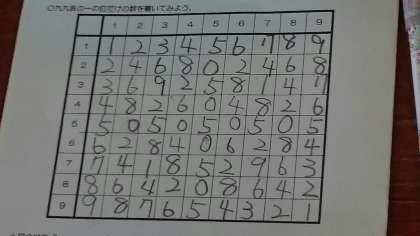 ○九九表の一の位だけの数を書いてみよう。
1 2 3 4 5 6 7 8 9
1 1 2 3 4 5 6 7 8 9
2 2 4 6 8 0 2 4 6 8
3 3 6 9 2 5 8 1 4 7
4 4 8 2 6 0 4 8 2 6
5 5 0 5 0 5 0 5 0 5
6 6 2 8 4 0 6 2 8 4
7 7 4 1 8 5 2 9 6 3
8 8 6 4 2 0 8 6 4 2
9 9 8 7 6 5 4 3 2 1